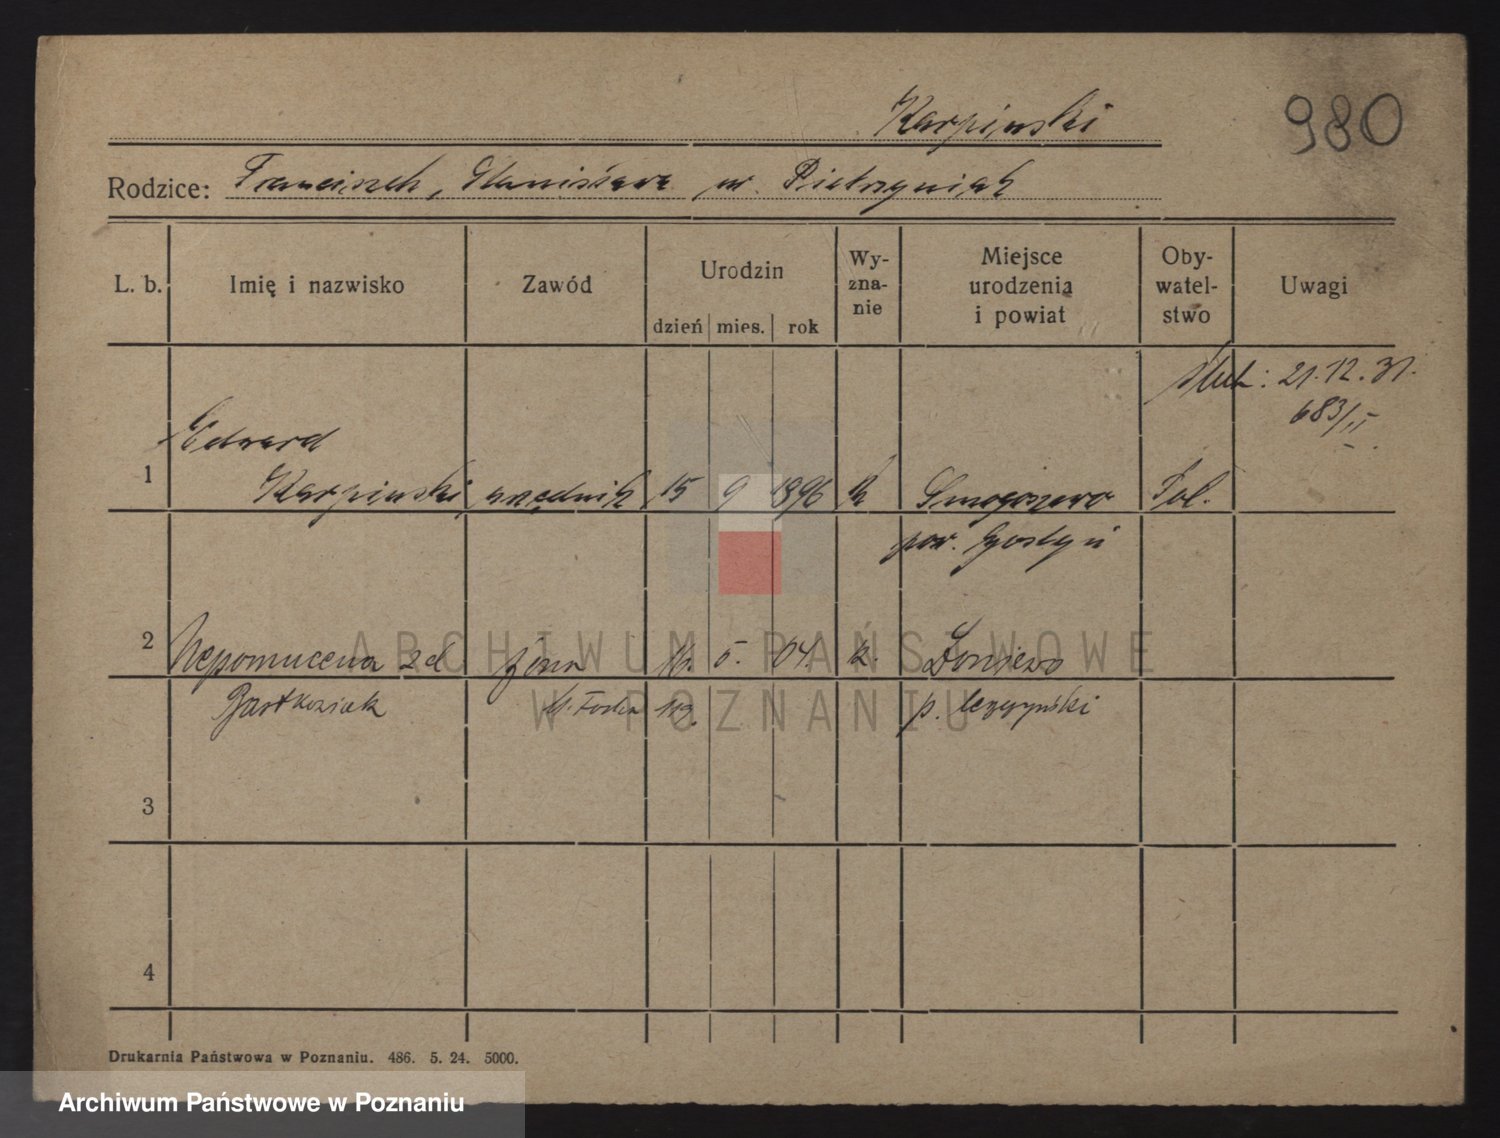 Karpinski
980
Rodzice: Franciszek, Stanisława ur. Pietrzyniak
L. b. Imię i nazwisko Zawód Urodzin dzień mies. rok Wy-zna-nie Miejsce urodzenia i powiat Oby-watel-stwo Uwagi
21.12.31.
683/II
Edward
1 Karpinski urzędnik 15 9 1896 k Smogorzewo Pol.
pow. Gostyń
2 Nepomucena zd żona 16. 5. 04. k.
Bartkoziak
3
4
Drukarnia Państwowa w Poznaniu. 486. 5. 24. 5000.
ARCHIWUM PAŃSTWOWE
W POZNANIU
Archiwum Państwowe w Poznaniu